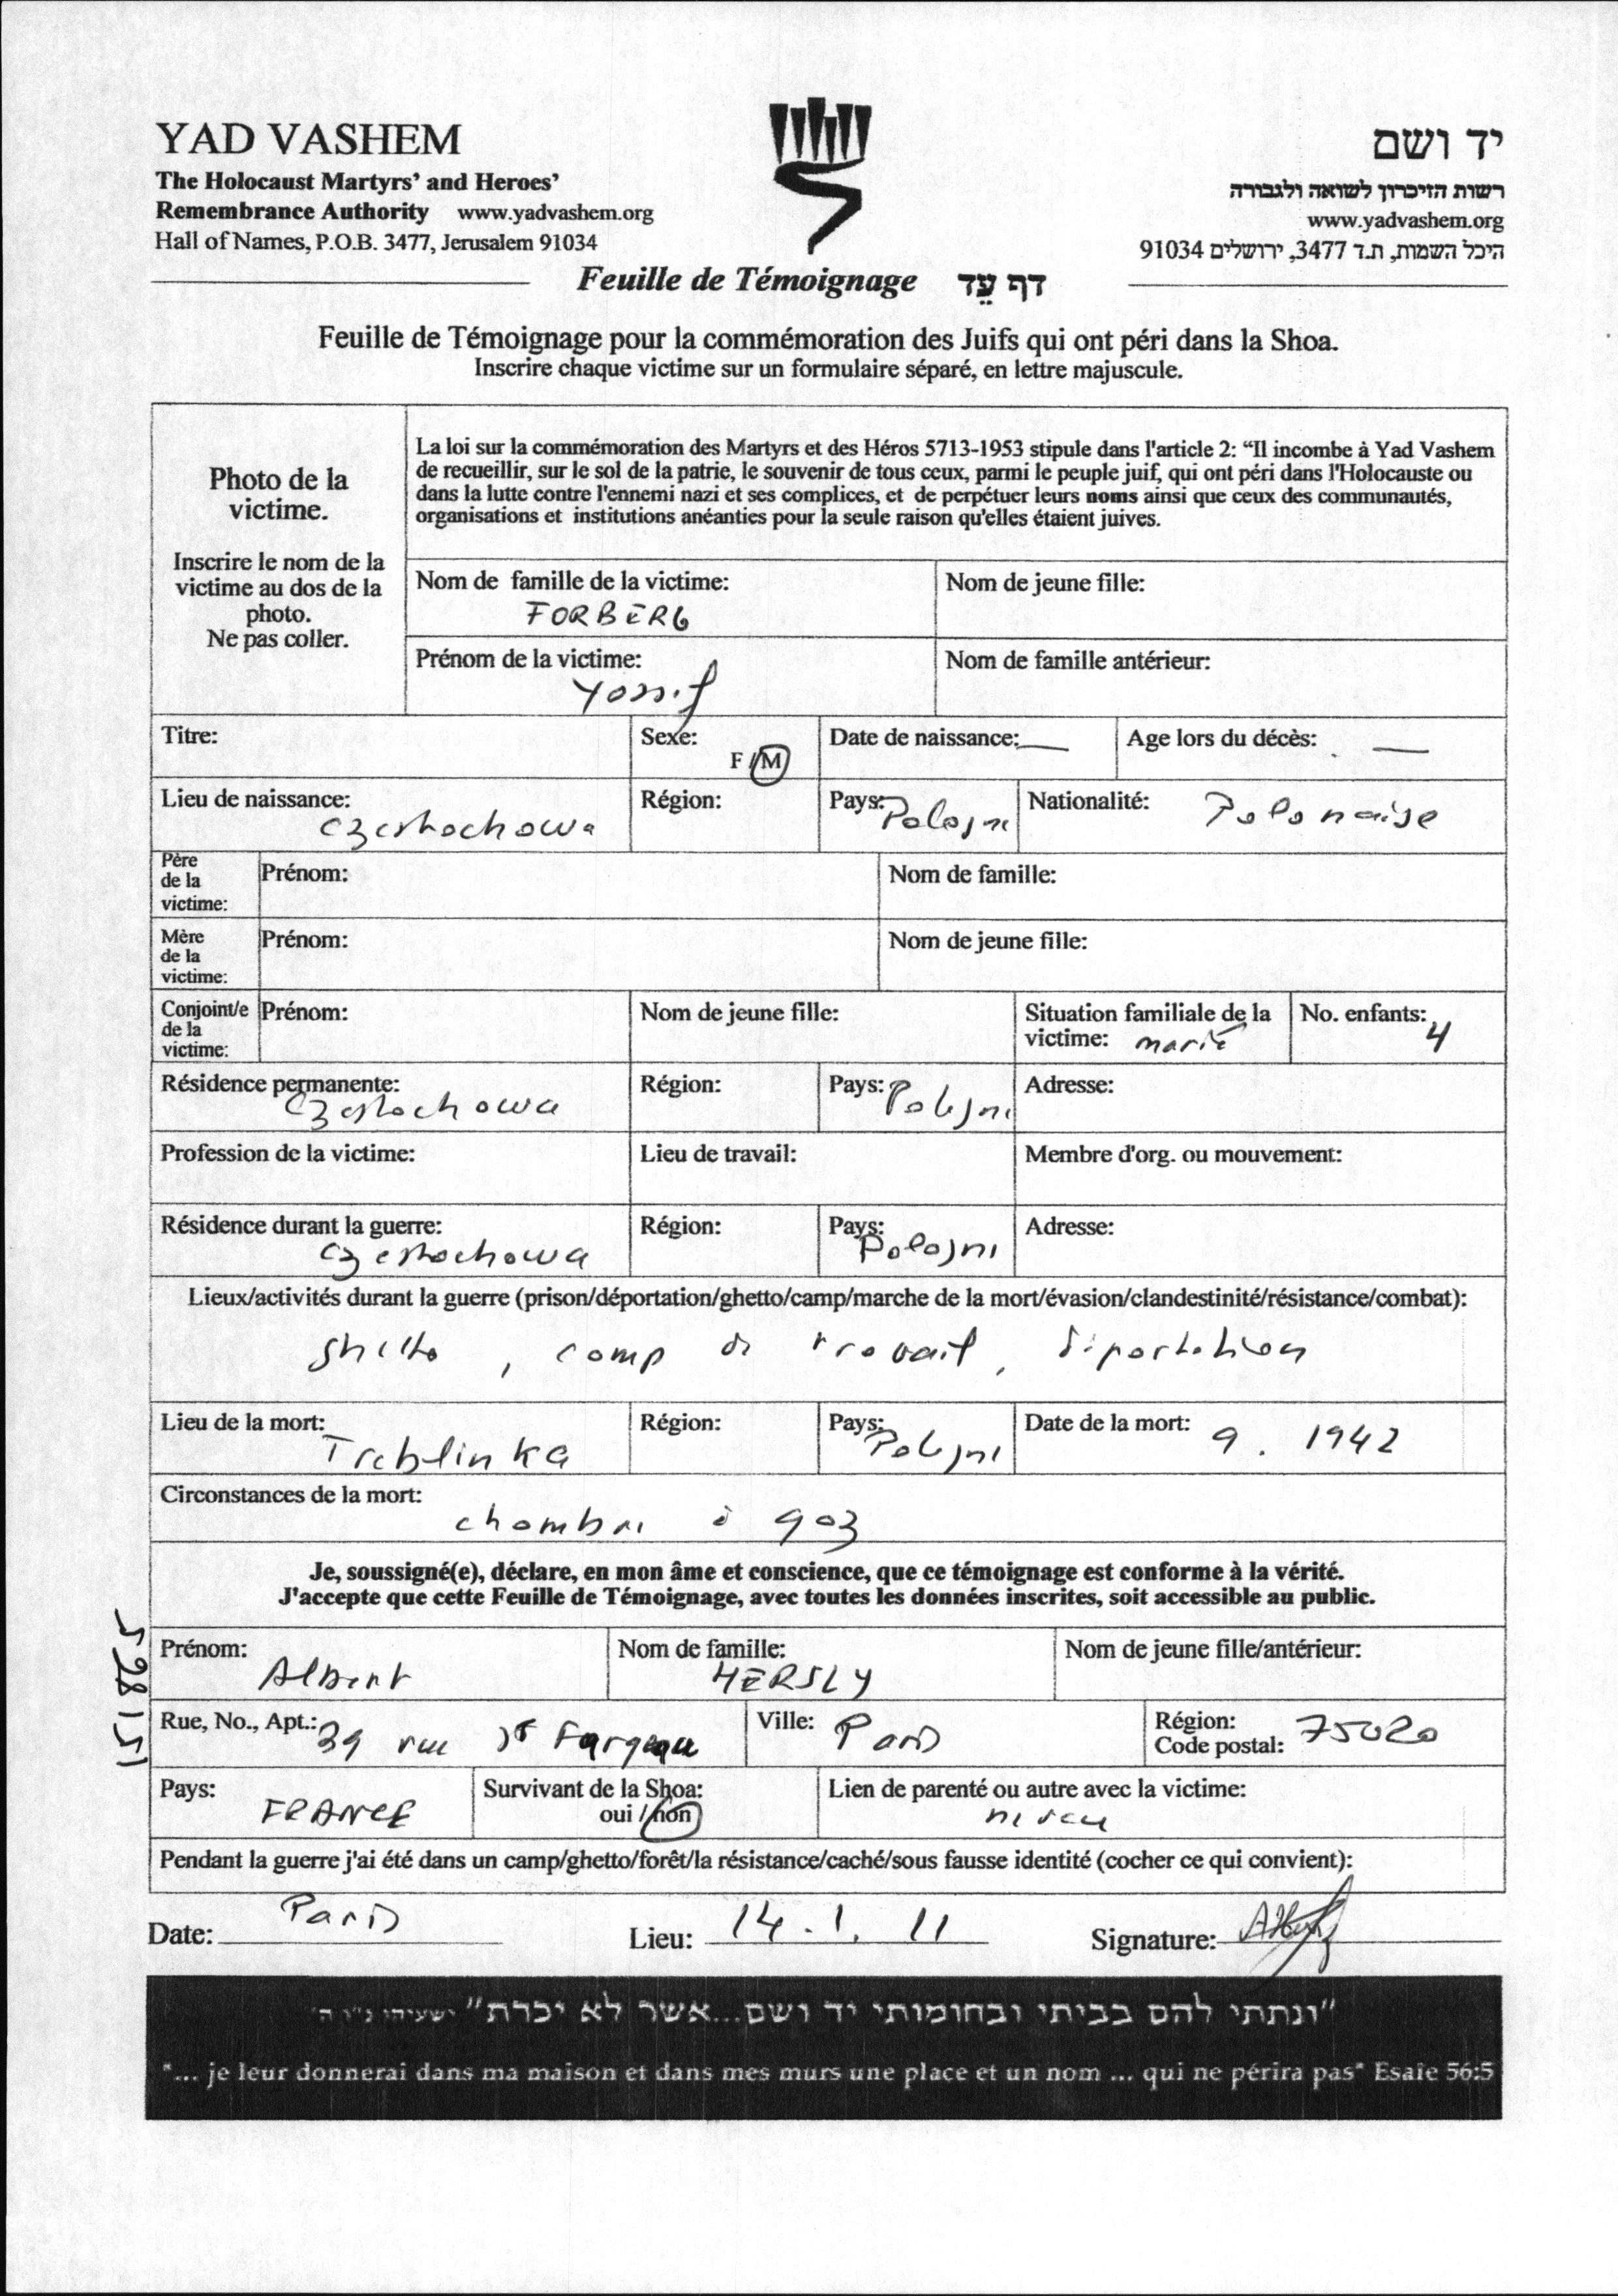 YAD VASHEM
The Holocaust Martyrs' and Heroes'
Remembrance Authority www.yadvashem.org
Hall of Names, P.O.B. 3477, Jerusalem 91034
יד ושם
רשות הזיכרון לשואה ולגבורה
www.yadvashem.org
היכל השמות, ת.ד 3477, ירושלים 91034
Feuille de Témoignage דף עֵד
Feuille de Témoignage pour la commémoration des Juifs qui ont péri dans la Shoa.
Inscrire chaque victime sur un formulaire séparé, en lettre majuscule.
Photo de la
victime.
Inscrire le nom de la
victime au dos de la
photo.
Ne pas coller.
La loi sur la commémoration des Martyrs et des Héros 5713-1953 stipule dans l'article 2: “Il incombe à Yad Vashem
de recueillir, sur le sol de la patrie, le souvenir de tous ceux, parmi le peuple juif, qui ont péri dans l'Holocauste ou
dans la lutte contre l'ennemi nazi et ses complices, et de perpétuer leurs noms ainsi que ceux des communautés,
organisations et institutions anéanties pour la seule raison qu'elles étaient juives.
Nom de famille de la victime: Nom de jeune fille:
FORBERG
Prénom de la victime: Nom de famille antérieur:
Yossif
Titre: Sexe: F / M Date de naissance: — Age lors du décès: —
Lieu de naissance: Czestochowa Région: Pays: Pologne Nationalité: Polonaise
Père de la victime: Prénom: Nom de famille:
Mère de la victime: Prénom: Nom de jeune fille:
Conjoint/e de la victime: Prénom: Nom de jeune fille: Situation familiale de la victime: marié No. enfants: 4
Résidence permanente: Czestochowa Région: Pays: Pologne Adresse:
Profession de la victime: Lieu de travail: Membre d'org. ou mouvement:
Résidence durant la guerre: Czestochowa Région: Pays: Pologne Adresse:
Lieux/activités durant la guerre (prison/déportation/ghetto/camp/marche de la mort/évasion/clandestinité/résistance/combat):
ghetto, camp de travail, déportation
Lieu de la mort: Treblinka Région: Pays: Pologne Date de la mort: 9. 1942
Circonstances de la mort:
chambre à gaz
Je, soussigné(e), déclare, en mon âme et conscience, que ce témoignage est conforme à la vérité.
J'accepte que cette Feuille de Témoignage, avec toutes les données inscrites, soit accessible au public.
528151
Prénom: Albert Nom de famille: HERSLY Nom de jeune fille/antérieur:
Rue, No., Apt.: 39 rue St Fargeau Ville: Paris Région: Code postal: 75020
Pays: FRANCE Survivant de la Shoa: oui / non Lien de parenté ou autre avec la victime: neveu
Pendant la guerre j'ai été dans un camp/ghetto/forêt/la résistance/caché/sous fausse identité (cocher ce qui convient):
Date: Paris Lieu: 14.1.11 Signature:
"ונתתי להם בביתי ובחומותי יד ושם...אשר לא יכרת" ישעיהו נ"ו ה'
"... je leur donnerai dans ma maison et dans mes murs une place et un nom ... qui ne périra pas" Esaïe 56:5